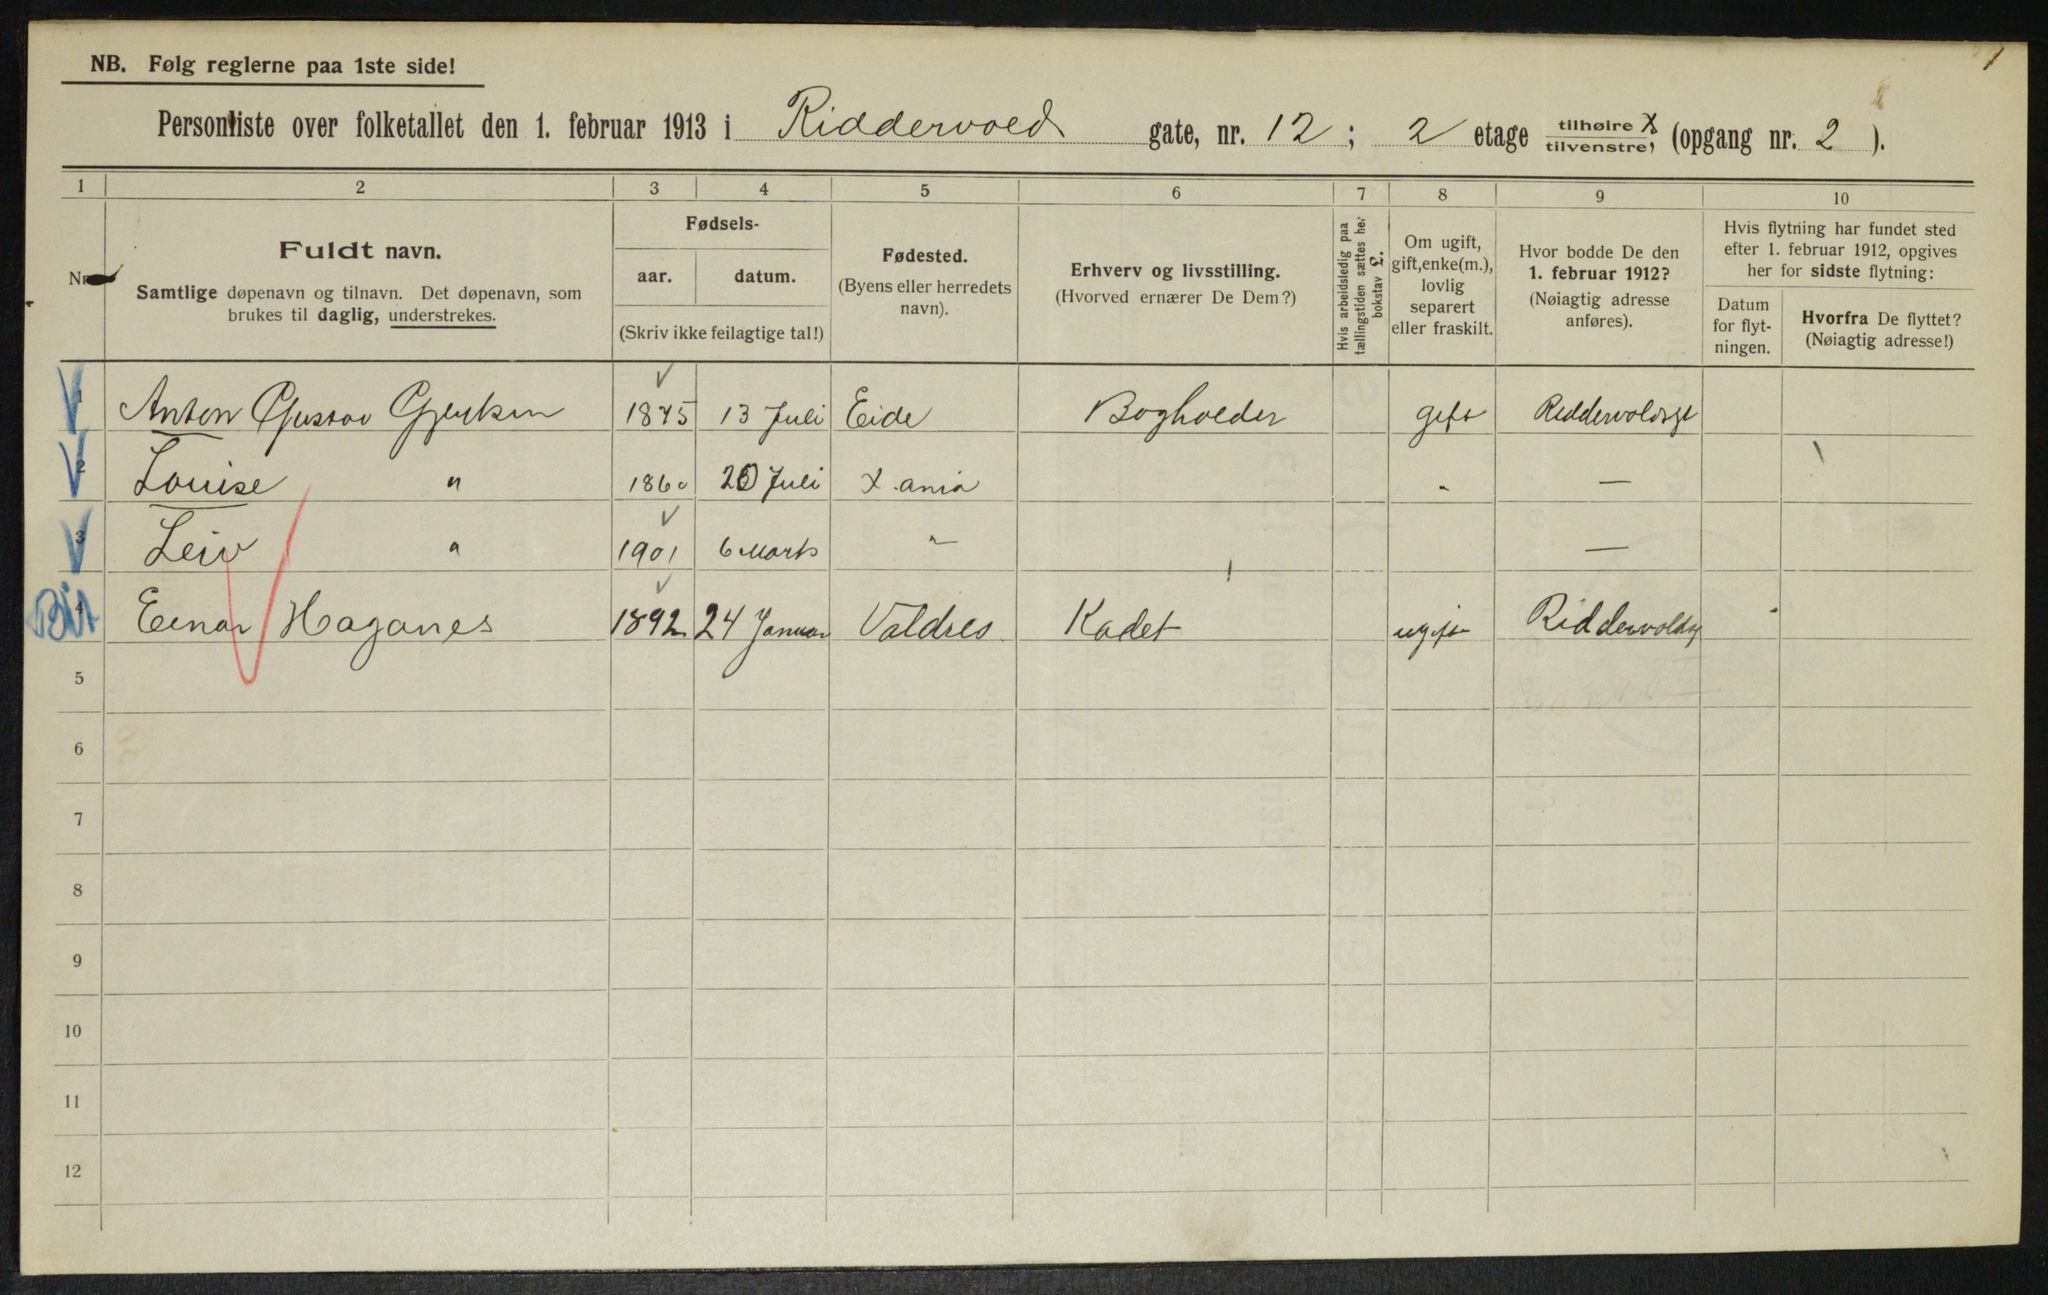 NB. Følg reglerne paa 1ste side!
Personliste over folketallet den 1. februar 1913 i Riddervolds gate, nr. 12; 2 etage tilhøire X tilvenstre, (opgang nr. 2 ).
1 2 3 4 5 6 7 8 9 10
Nr.
Fuldt navn.
Samtlige døpenavn og tilnavn. Det døpenavn, som
brukes til daglig, understrekes.
Fødsels-
aar. datum.
(Skriv ikke feilagtige tal!)
Fødested.
(Byens eller herredets
navn).
Erhverv og livsstilling.
(Hvorved ernærer De Dem?)
Hvis arbeidsledig paa
tællingstiden sættes her
bokstav L.
Om ugift,
gift, enke(m.),
lovlig
separert
eller fraskilt.
Hvor bodde De den
1. februar 1912?
(Nøiagtig adresse
anføres).
Hvis flytning har fundet sted
efter 1. februar 1912, opgives
her for sidste flytning:
Datum
for flyt-
ningen.
Hvorfra De flyttet?
(Nøiagtig adresse!)
1 Anton Gustav 1875 13 Juli Eide Bogholder gift Riddervoldsgt
2 Louise " 1860 20 Juli X.ania " —
3 Leiv " 1901 6 Marts " —
4 Einar Haganes 1892 24 Januar Valdres Kadet ugift Riddervoldsg
5
6
7
8
9
10
11
12